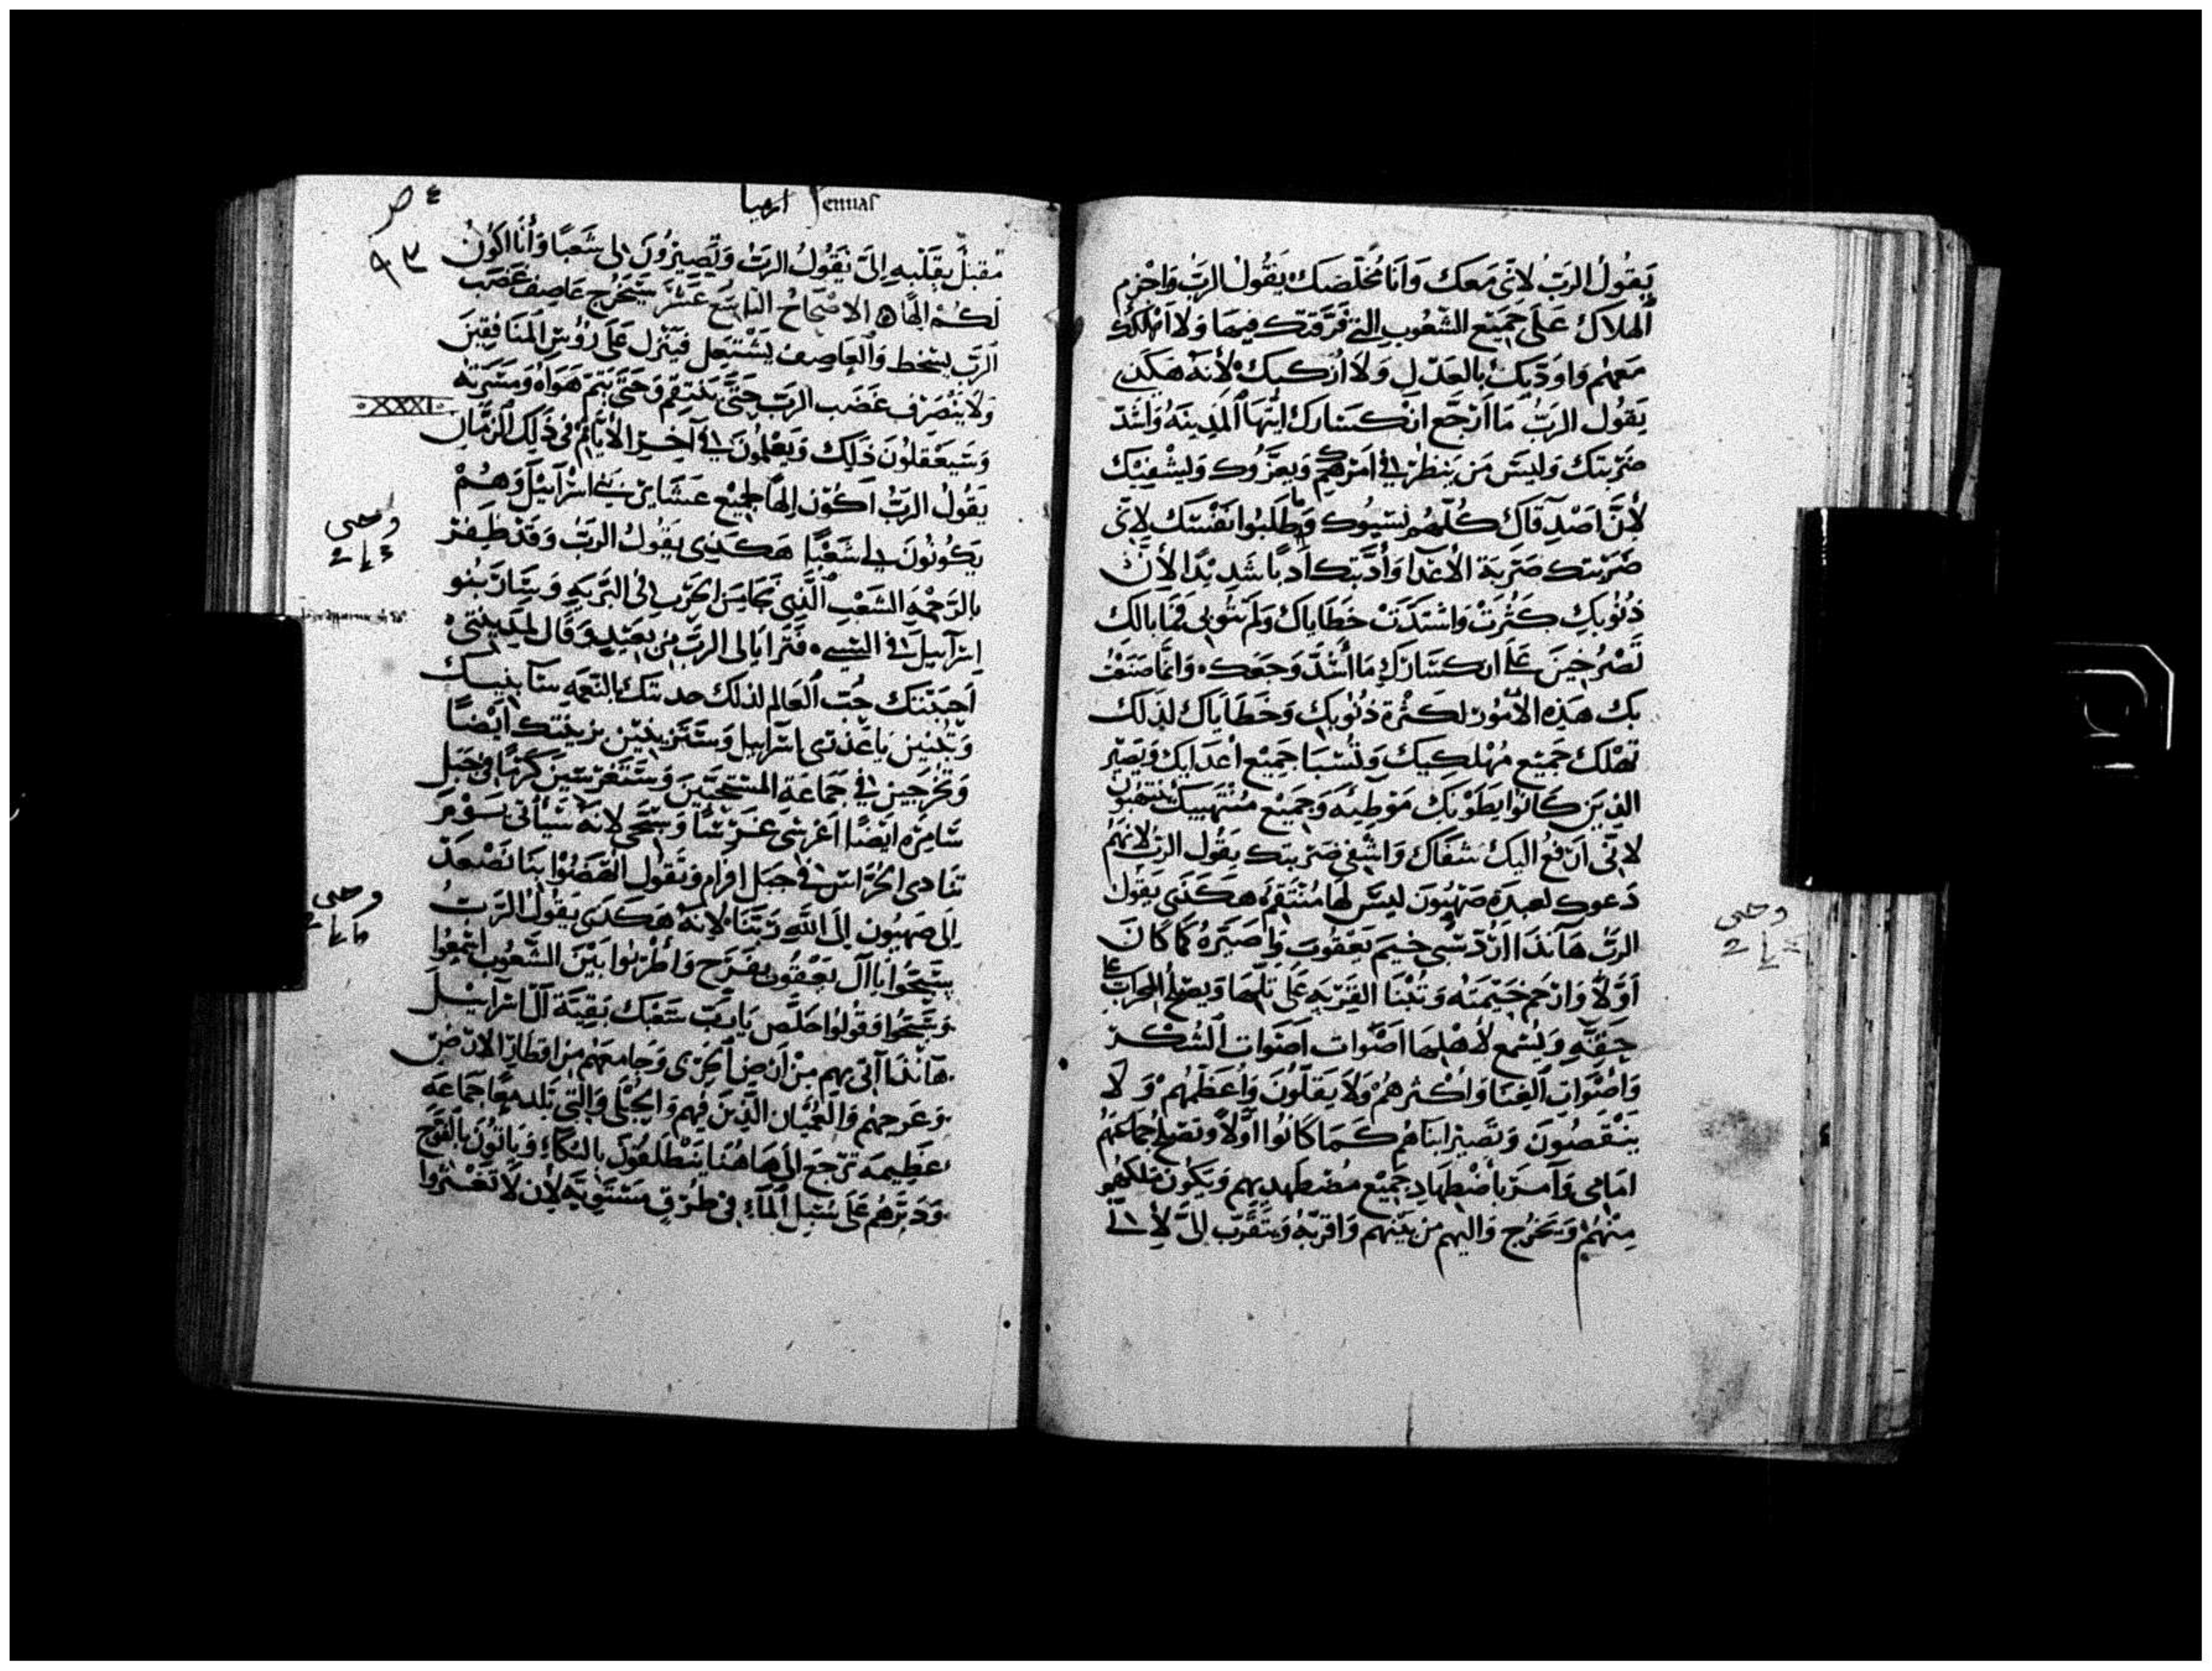 يَقُولُ الرَبُ لانّى مَعَك وَانَا مُخَلّصَك يَقُول الرَبُ وَاجْزِم
الهلاك عَلَى جَمِيْع الشّعُوب التى فَرَّقتك فيهَا وَلا اهْلكك
مَعَهُم وَاوَدّبك بالعَدْلِ وَلَا ازكيك لأنّه هَكَذى
يَقُول الرَبُ مَا ارْجَع انكسَارك ايّتهَا المدِينَة وَاشَدّ
ضَرْبتك وَليسَ مَن يَنظر فى امْرك وَيعزّوك وَليشفيك
لأنَّ اصَدِقآك كُلّهم نسَيوك وَطلَبوا نفْسَك لانى
ضَرَبتك ضَربَة الأعْدَا وَأدّبتك ادبًا شَدِيْدًا لأنّ
ذُنُوبكِ كثُرتْ وَاشتَدّتْ خَطَاياك وَلم تتُوبى فمَا بالك
تَصْرُخِينَ عَلَى انكسَاركِ مَا اشَدّ وَجَعك وَانمَا صَنَعْتُ
بك هَذِه الأمُور لكثْرة ذنُوبك وَخَطَايَاك لذلك
تهْلك جَمِيْع مُهْلكيك وَتُسْبَا جَمِيْع اعْدَايك وَيَصِيْر
الذِيَن كَانوا يَطَوْنك مَوْطِئه وَجَمِيْع مُنْتهبيك يُنتهبُون
لانّى ارْفعُ اليك شفَاك وَاشْفى ضَرْبتك يقُول الرَبُ لانهُم
دَعوك لعبدَة صَهْيُون ليسَ لهَا مُنْتقم هَكذَى يَقُول
الرَبُ هَا نذَا ارُدّ سَبى خيَم يَعْقُوب وَاصَيّرهُ كَمَا كَان
اوّلاً وَارْحَم خَيْمَته وَتُبْنَا القرْيه عَلى تلّهَا وَيصْلح المحرَاب عَلى
حِقّهِ وَليسْمع لأهْلهَا اصْوَات اصَوات الشكر
وَاصْوَاتِ الغِنَا وَاكْثرهُمْ وَلَا يَقلّونَ وَاعَظّمهُم وَلَا
يَنْقصُونَ وَتَصيرُ ابناهُم كَمَا كَانُوا اوّلاً وَتصلحُ جمَاعَتهُم
امَامى وَآمرَ باضْطهَادِ جَمِيْع مُضْطَهديهم وَيَكُون مَلكهُم
مِنْهُم وَيَخرُج وَاليهم مِن بَيْنهم وَاقرّبهُ وَيَتقَرّب الىّ لأنّ
وحى
ارميا Jeremias
ص
٩٣
مُقبلٌ بقَلْبهِ الىّ يَقُولُ الرَبُ وَتَصِيْرُونَ لى شَعْبًا وَأنَا اكُونُ
لَكُمْ الهًا الاصْحَاحُ التاسع عشَر سَيَخرُج عَاصِف غَضَب
الرَبّ بسَخط وَالعَاصِف يَشْتعل فيَنزل عَلَى رؤس المنَافقينَ
وَلَا ينْصَرف غَضَب الرَبّ حَتَّى يَنتقم وَحَتَّى يَتمّ هَوَاهُ وَمسَرّته
وَسَيعقلُونَ ذلك وَيَعْلمُونَ فى آخِر الأيّام فى ذَلِك الزمَان
XXXI
يَقُولُ الرَبُ اكُون الهًا لجَمِيْع عَشَاير بنى اسْرَآييلَ وَهُمْ
يَكُونُونَ لى شَعْبًا هَكَذى يَقُولُ الرَبُ وَقَدْ ظفرَ
وحى
بالرَحْمَة الشَعْبِ الذِى كَانَ مِن الحَرْب فى البَرّيه وَسَارَ بنو
اسْرآييل فى السَبى فَتَرايَا لى الرَبّ مِن بعيْدٍ وَقَال لمدِينتى
احبَبْتك حُب العَالم لذلك حدبتك بالنّعمَه سَابنيك
وَتُبنين يَا عذرى اسْرَآييل وَستَتزينين بزينتك ايْضاً
وَتَخْرجِين فى جَمَاعَة المسَبّحيْنَ وَستَغرسين كرمًا فى جَبَل
سَامِرَة ايضًا اغرسى غرسًا وَسَبّحى لانهُ سَيَأتى يَوْم
تنَادى الحُرّاس فى جبَل افرام وَتقُول انْهَضُوا بنَا نَصْعد
وحى
الَى صَهيُون الَى الله رَبّنَا لانهُ هَكَذى يقُولُ الرَبُ
سَبّحُوا يا آل يَعْقُوب بفَرَح وَاطْرَبُوا بَيْنَ الشعُوب اسْمعُوا
وَسَبّحُوا وَقُولوا خلّص يَا رَبّ شعبَك بَقِيّة آل اسْرَآييل
هَا نذَا آتى بهم مِنْ ارْض الجرْبى وَجَامعهم مِن اقطَار الارْض
وَعرجهم وَالعُميَان الذِينَ فيهم وَالحُبْلَى وَالتى تَلد معًا جَمَاعَه
عَظِيمَه تَرْجعَ الَى هَاهُنا يَنْطلقُونَ بالبُكَاء وَيَاتُونَ بالفَرَح
وَدَبرهُم عَلَى سَبيل المآء فى طُرُق مُسْتَوِيَة لأن لَا تَعْثروا